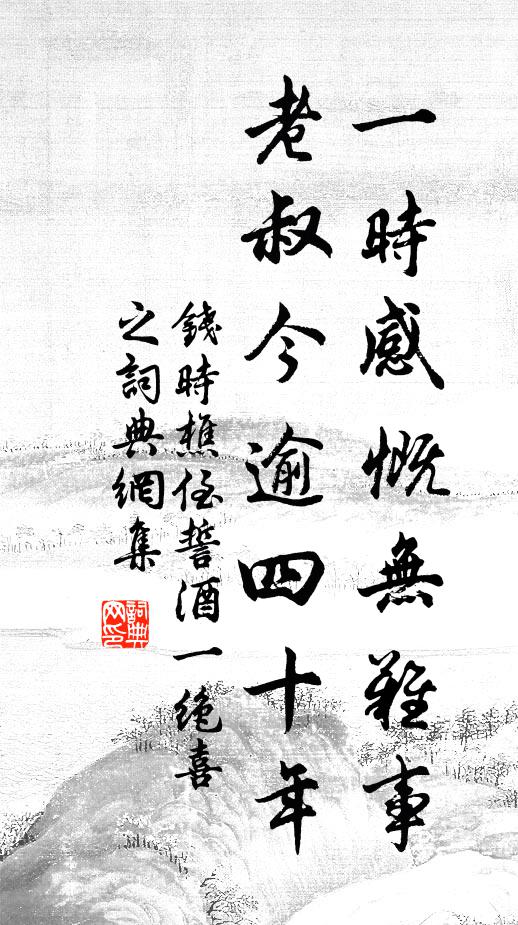 一時感慨無難事
老叔今逾四十年
錢時樵侄誓酒一絕喜
之詞典網集
詞典網印